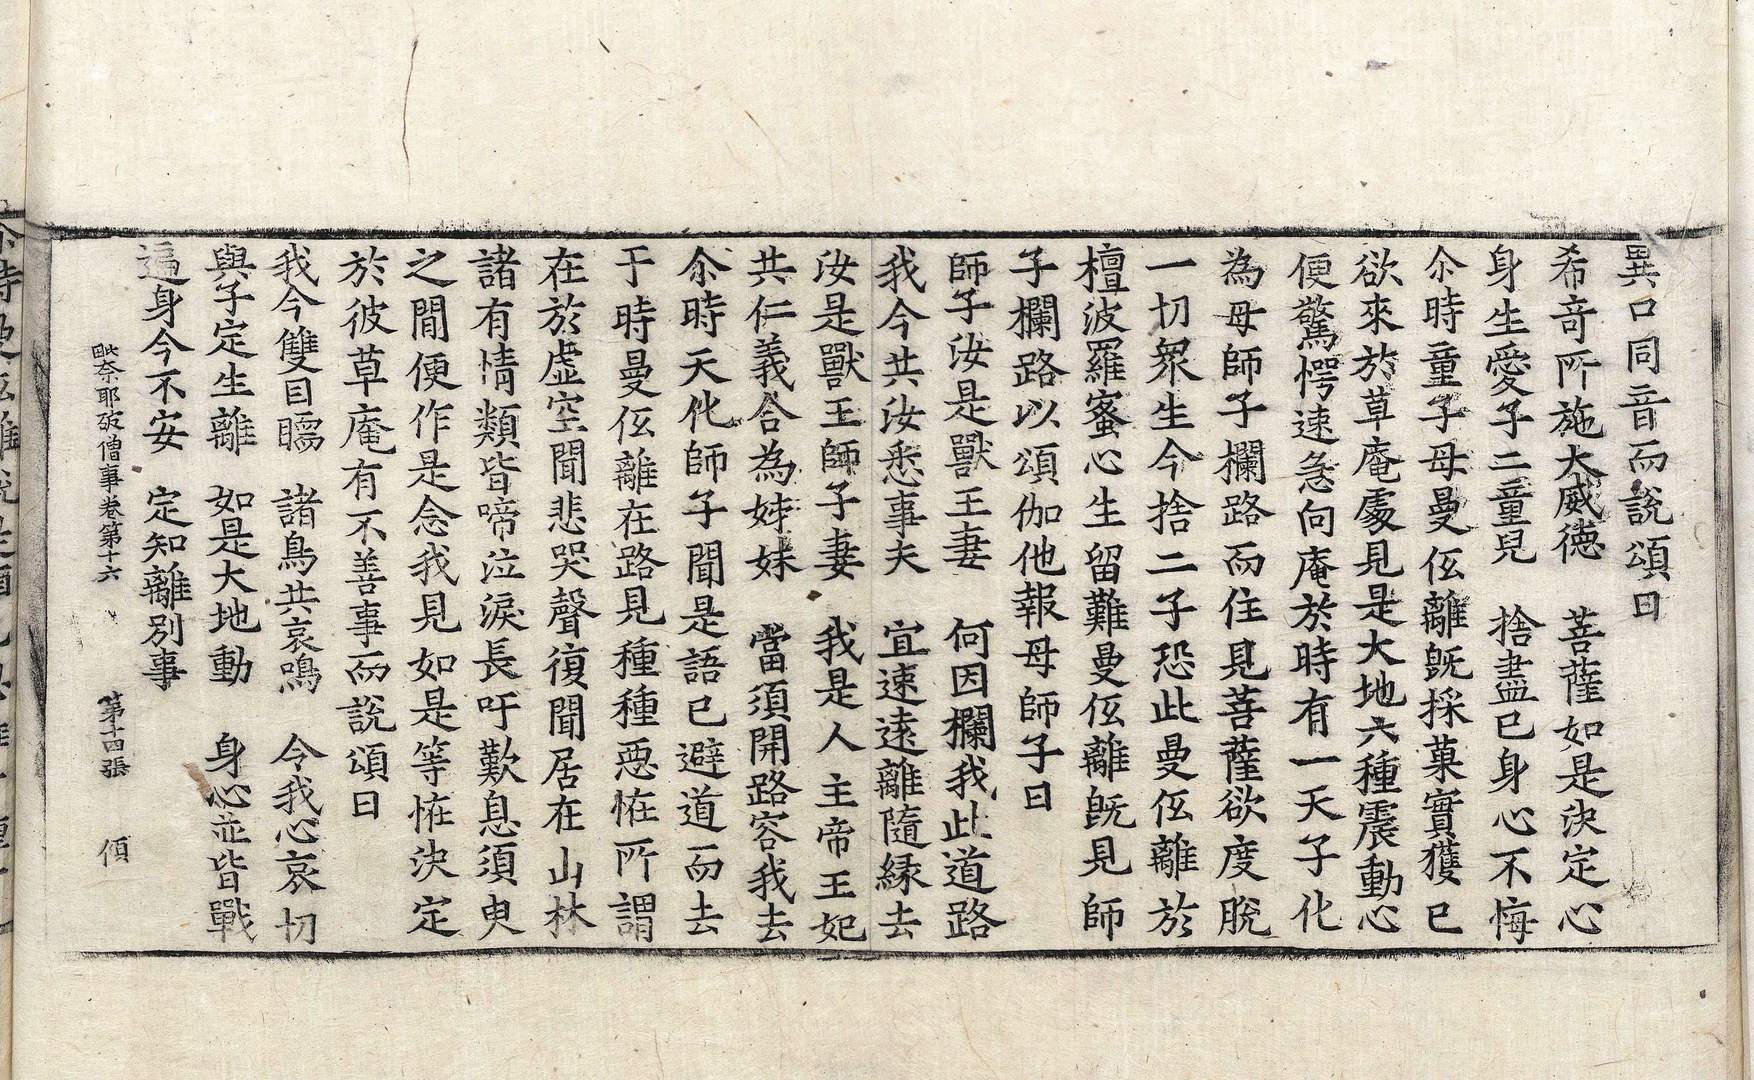 異口同音而說頌曰
希竒所施大威徳　菩薩如是決定心
身生愛子二童兒　捨盡已身心不悔
尒時童子母曼伭離旣採菓實獲已
欲來於草庵處見是大地六種震動心
便驚愕速急向庵於時有一天子化
為母師子欄路而住見菩薩欲度脫
一切衆生今捨二子恐此曼伭離於
檀波羅蜜心生留難曼伭離旣見師
子欄路以頌伽他報母師子曰
師子汝是獸王妻　何因欄我此道路
我今共汝悉事夫　宜速遠離隨縁去
汝是獸王師子妻　我是人主帝王妃
共仁義合為姊妹　當須開路容我去
尒時天化師子聞是語已避道而去
于時曼伭離在路見種種惡恠所謂
在於虛空聞悲哭聲復聞居在山林
諸有情類皆啼泣淚長吁歎息須臾
之間便作是念我見如是等恠決定
於彼草庵有不善事而說頌曰
我今雙目瞤　諸鳥共哀鳴　令我心哀切
與子定生離　如是大地動　身心並皆戰
遍身今不安　定知離別事
毗奈耶破僧事卷第十六　第十四張　傾